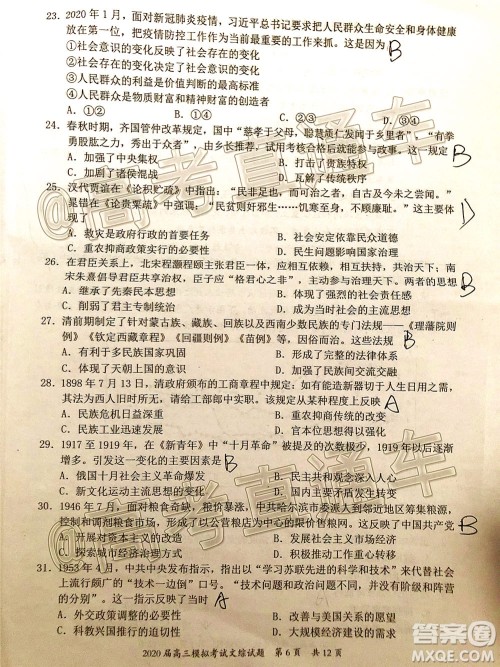 23. 2020年1月，面对新冠肺炎疫情，习近平总书记要求把人民群众生命安全和身体健康
放在第一位，把疫情防控工作作为当前最重要的工作来抓。这是因为 B
①社会意识的变化反映了社会存在的变化
②社会存在的变化决定了社会意识的变化
③人民群众的利益是价值判断的最高标准
④人民群众是物质财富和精神财富的创造者
A. ①② B. ③④ C. ①③ D. ②④
24. 春秋时期，齐国管仲改革规定，国中“慈孝于父母，聪慧质仁发闻于乡里者”、“有拳
勇股肱之力，秀出于众者”，由乡长推荐，试用考核合格后就能参与政事。这一做法 B
A. 加强了中央集权 B. 打击了贵族特权
C. 加剧了诸侯混战 D. 瓦解了传统秩序
25. 汉代贾谊在《论积贮疏》中指出：“民非足也，而可治之者，自古及今未之尝闻。”
晁错在《论贵粟疏》中强调：“民贫则奸邪生……饥寒至身，不顾廉耻。”这主要体
现了 D
A. 救灾是政府行政的基本内容 B. 社会安定依靠民众道德
C. 重农抑商政策实行的必要性 D. 民生问题影响国家治理
26. 在君臣关系上，北宋程灏程颐主张君臣一体，应当相互扶持，共治天下；南
宋朱熹倡导君臣共享治权，臣子应“格君心之非”，主动参与治理天下。两者的思想 B
A. 迎合了先秦民本思想 B. 体现了强烈的社会责任
C. 削弱了君主专制统治 D. 成为当时的主流思想
27. 清前期制定了针对蒙古族、藏族、回族以及西南少数民族的专门法规——《理藩院则
例》《钦定西藏章程》《回疆则例》《苗例》等，因俗而治。这些法规 B
A. 有利于多元文化共存 B. 形成了完整的法律体系
C. 有利于边疆地区稳定 D. 扩大了清王朝统治区域
28. 1898年7月13日，清政府颁布的工商章程规定：如有能造新器切于人生日用之需，
其法为西人旧时所无者，请给工部郎中实职。这一规定从本质上反映了当时 A
A. 民族危机日益深重 B. 重农抑商传统的改变
C. 民族工业迅速发展 D. 国家本位的价值取向
29. 1917至1919年，在《新青年》中“十月革命”被提及的次数不多，而1919年以后逐渐
增多。引发这一变化的主要因素是 B
A. 俄国十月革命的影响 B. 民主共和观念深入人心
C. 新文化运动主流思想变化 D. 国内主要矛盾发生变化
30. 1946年7月，面对粮食奇缺，粮价暴涨，中共哈尔滨市委派人到邻近地区筹集粮源，
控制和调剂粮食市场，逐步形成了以公营粮店为中心的粮食销售网。这反映了中国共产党 B
A. 开展对资本主义的改造
C. 探索城市经济治理方式
31. 1953年4月，中共中央发布指示，指出以“学习苏联先进的科学和技术”来代替社会
上流行颇广的“技术一边倒”口号。“技术问题和政治问题不同，并没有阶级和阵营
的分别”。这一指示反映了 A
A. 外交政策调整的必要性 B. 改善与美国关系的愿望
C. 工业化发展的客观要求 D. 意识形态影响逐渐减弱
2020届高三模拟考试文综试题 第6页 共12页
@高考直通车
@高考直通车
答案圈
MXQE.COM